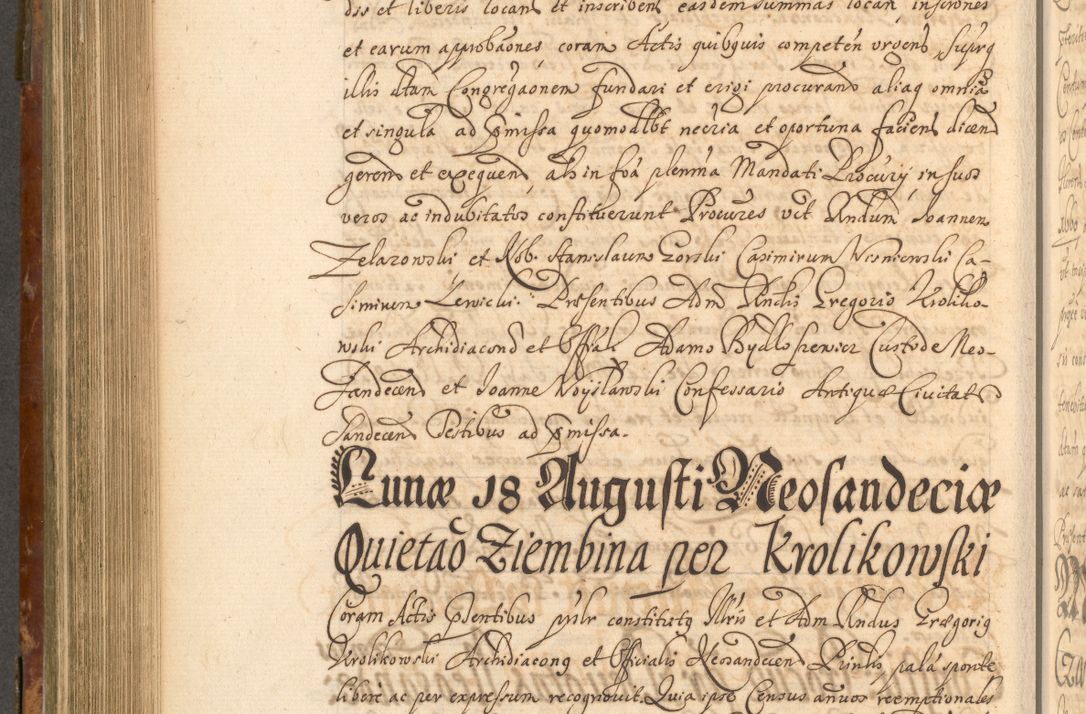 et liberis locan et inscriben easdem summas locan inscriones
et earum approbaones coram Actis quibquis competen urgen, supra
illis dtam Congregaonem fundari et erigi procuran aliaq omnia
et singula ad pmissa quomodlbt necria et oportuna facien dicen
geren et exequen, als in foa plenma Mandati Procurij in suos
veros ac indubitatos constituerunt Procures vct Rndum Joannem
Zelazowski et Nob. Stanislaum Gorski Casimirum Wisniewski Ca-
simirum Lewicki. Presentibus Adm Rndis Gregorio Kroliko-
wski Archidiacono et Offiali Adamo Bydloszewicz Custode Neo-
sandecen et Joanne Woyslawski Confessario Antiquæ Civitatis
Sandecen Testibus ad pmissa.
Lunæ 18 Augusti Neosandeciæ
Quietao Ziembina per Krolikowski
Coram Actis psentibus pslr constitutq Illris et Adm Rndus Gregorig
Krolikowski Archidiaconq et Officialis Neosandecen Prinlis palã sponte
libere ac per expressum recognovit. Quia ipse Census annuos reemptionales